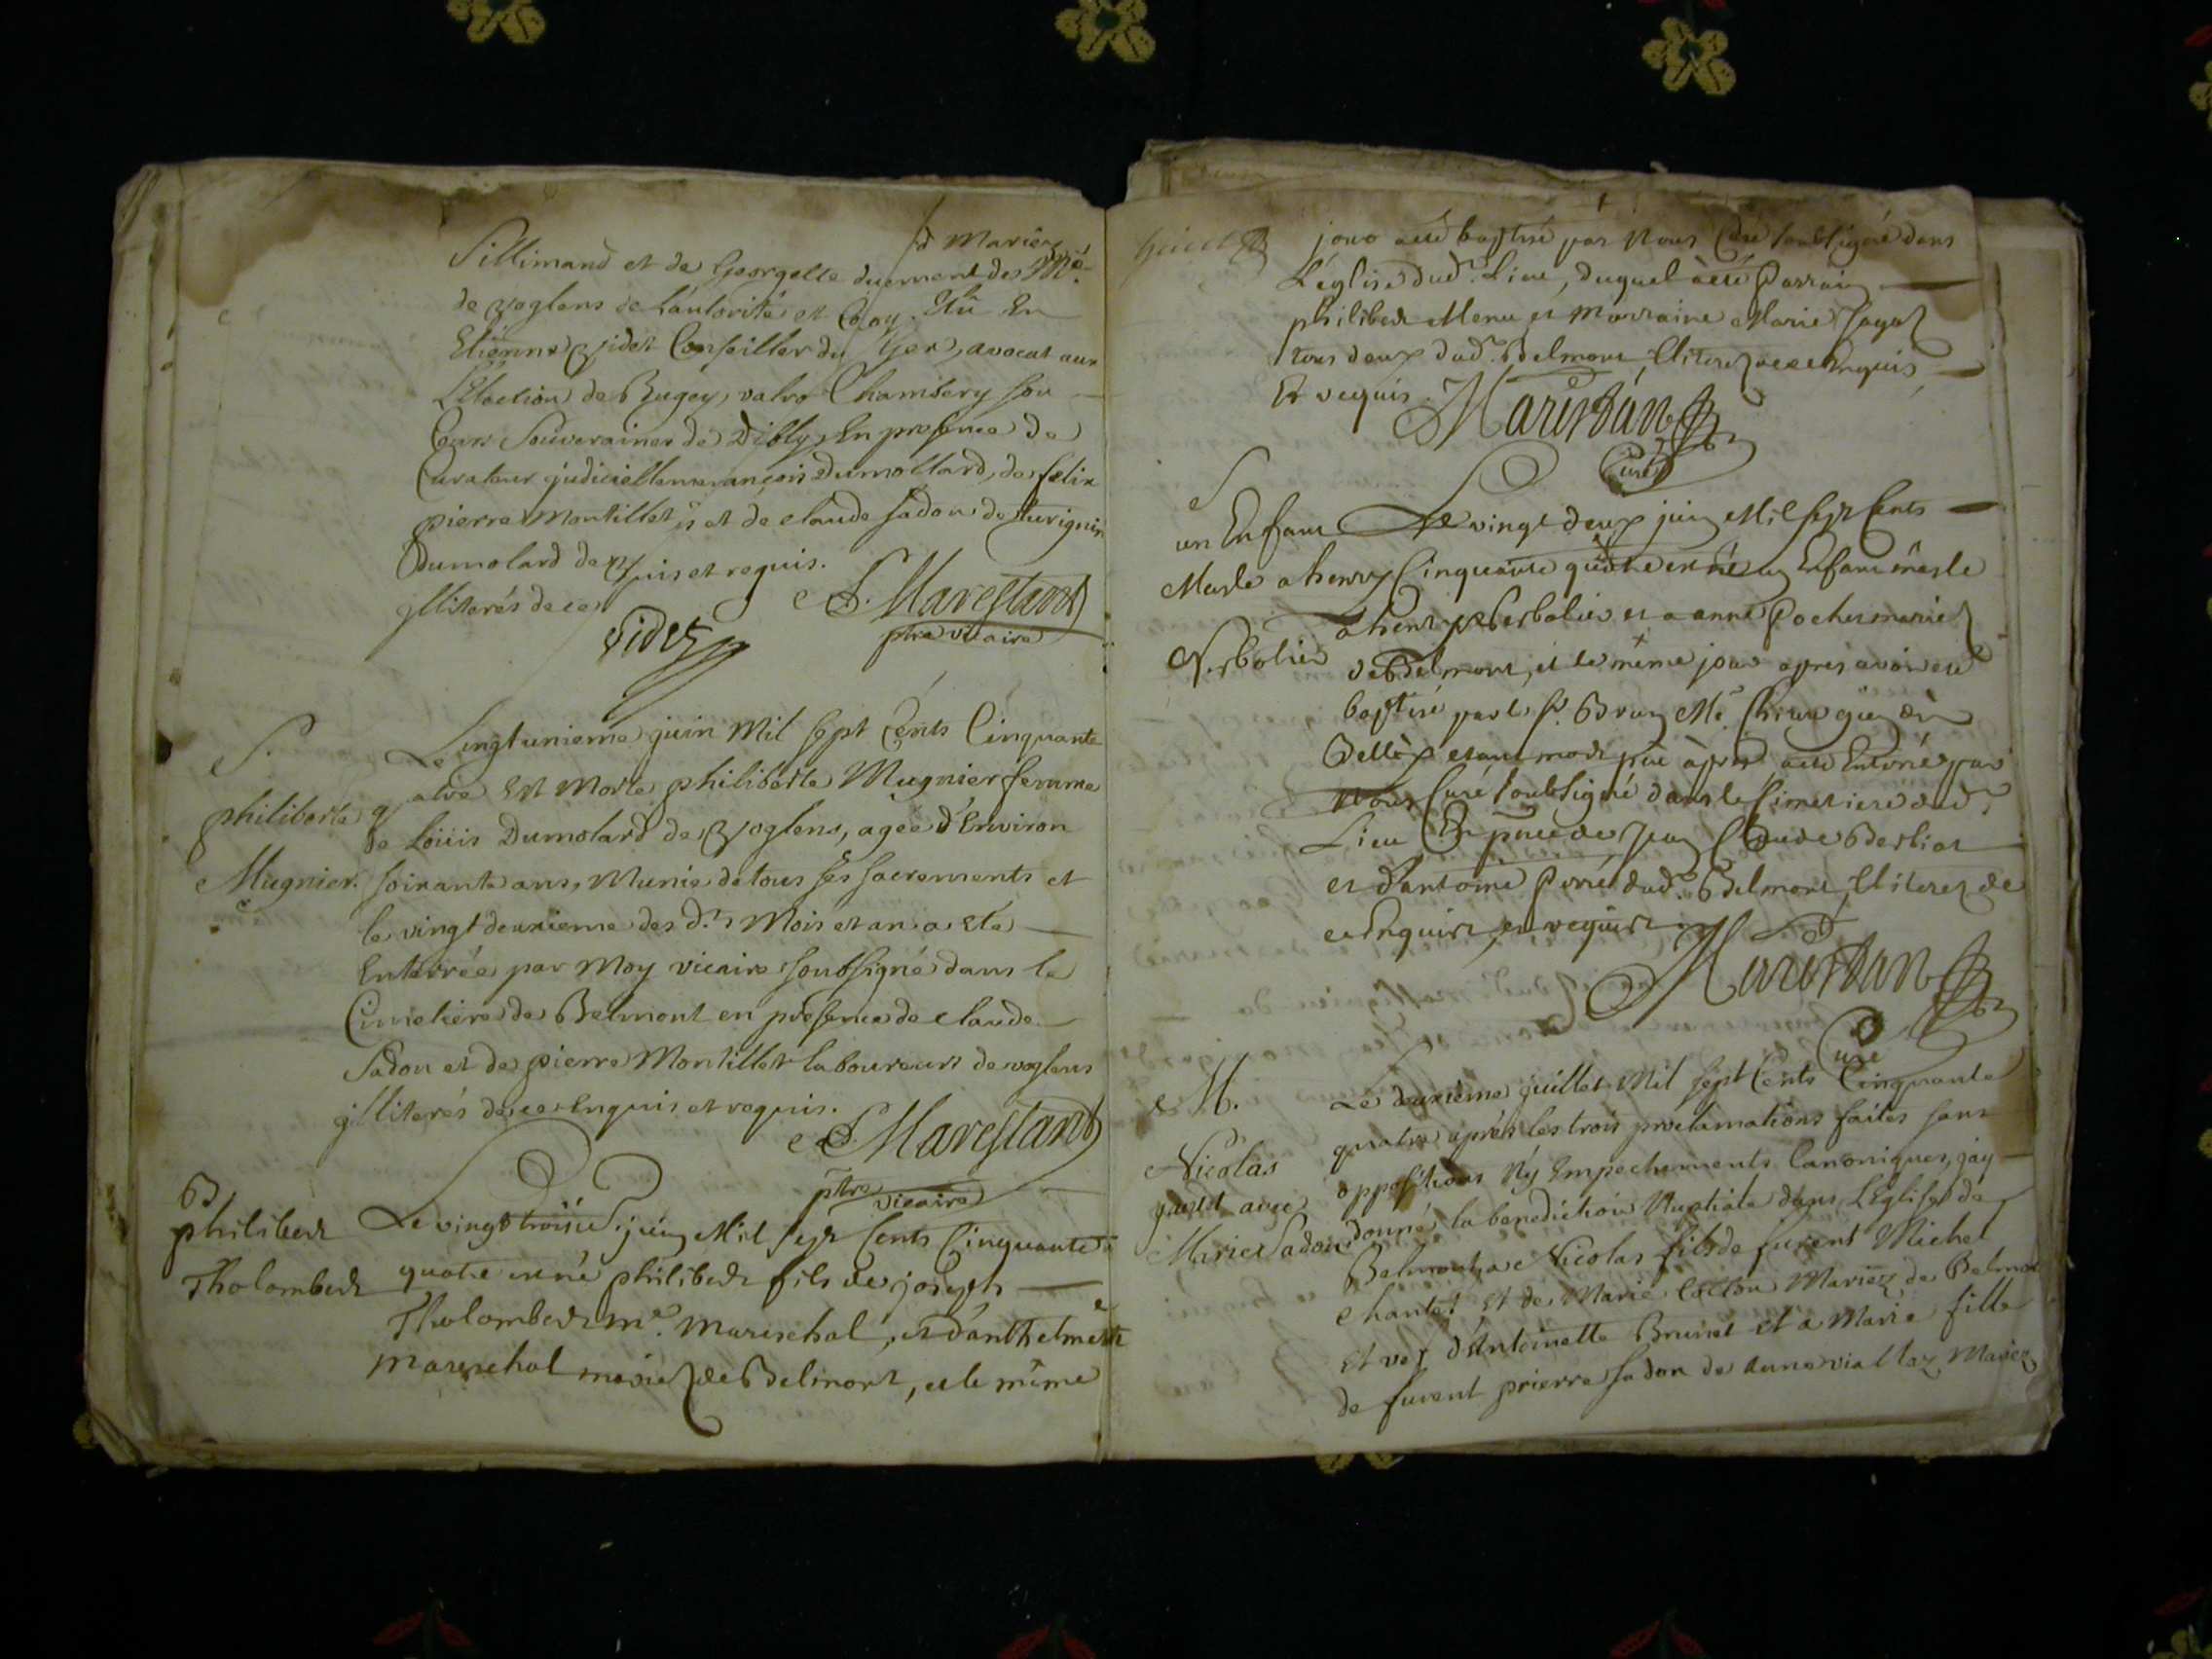 Sillimand et de Georgette duement des
mariez
de voglens de l'autorité et
Etienne videt Conseiller du avocat aux
L'Election de Bugey, valro Chambery
Cours Souveraines de En presence de
Curateur françois Dumollard, de felix
pierre Montillet et de claude sadon de
Dumolard de et requis.
jlliterés de ce
videt
S. Marestand
ptre vicaire
S.
philiberte
Mugnier.
Le vingtunieme juin Mil sept Cents Cinquante
quatre Est Morte philiberte Mugnier femme
de Loüis Dumolard de voglens, agée d'Environ
soixante ans, Munie de tous ses sacrements et
le vingt deuxieme des d.ts Mois et an a été
Enterrée par Moy vicaire soubsigné dans le
Cimetiére de Belmont en présence de claude
Sadon et de pierre Montillet laboureurs de voglens
jlliterés de ce enquis et requis.
S. Marestand
ptre vicaire
B
philibert
Tholombert
Le vingt troisie. juin Mil sept Cents Cinquante
quatre est né philibert fils de joseph
Tholombert me. mareschal, et d'anthelmette
mareschal mariez de Belmont, et le même
jour a été baptisé par Nous Curé soubsigné dans
L'église dud. Lieu, duquel à été Parrain
philibert Menu et Marraine Marie
tous deux dud. Belmont, Illiterez de ce Enquis
Et requis. Marestan
Curé
S
un Enfant
Masle a henry
Verbolier
Le vingt deux juin Mil sept Cents
Cinquante quatre est né un Enfant mâsle
a henry Verbolier et a anne Pochet mariez
de Belmont, et le même jour apres avoir été
baptisé par le sr. Brun Me. Chirurgien de
Belley etant mort peu àprès a été Enterré par
Nous Curé soubsigné dans le Cimetiere dud.
Lieu En pnce de Jean Claude Berliat
et d'antoine Perret dud. Belmont, Illiterez de
ce Enquis, et requist. Marestan
Curé
M.
Nicolas
avec
Marie Sadon
Le deuxiéme juillet Mil sept Cents Cinquante
quatre après les trois proclamations faites sans
oppositions Ny Empechements Canoniques, j'ay
donné la benediction Nuptiale dans L'Eglise de
Belmont a Nicolas fils de furent Michel
chantet Et de Marie Mariez de Belmont
Et vef d'Antoinette Brunet et a Marie fille
de furent pierre sadon de Anne viallaz Mariez